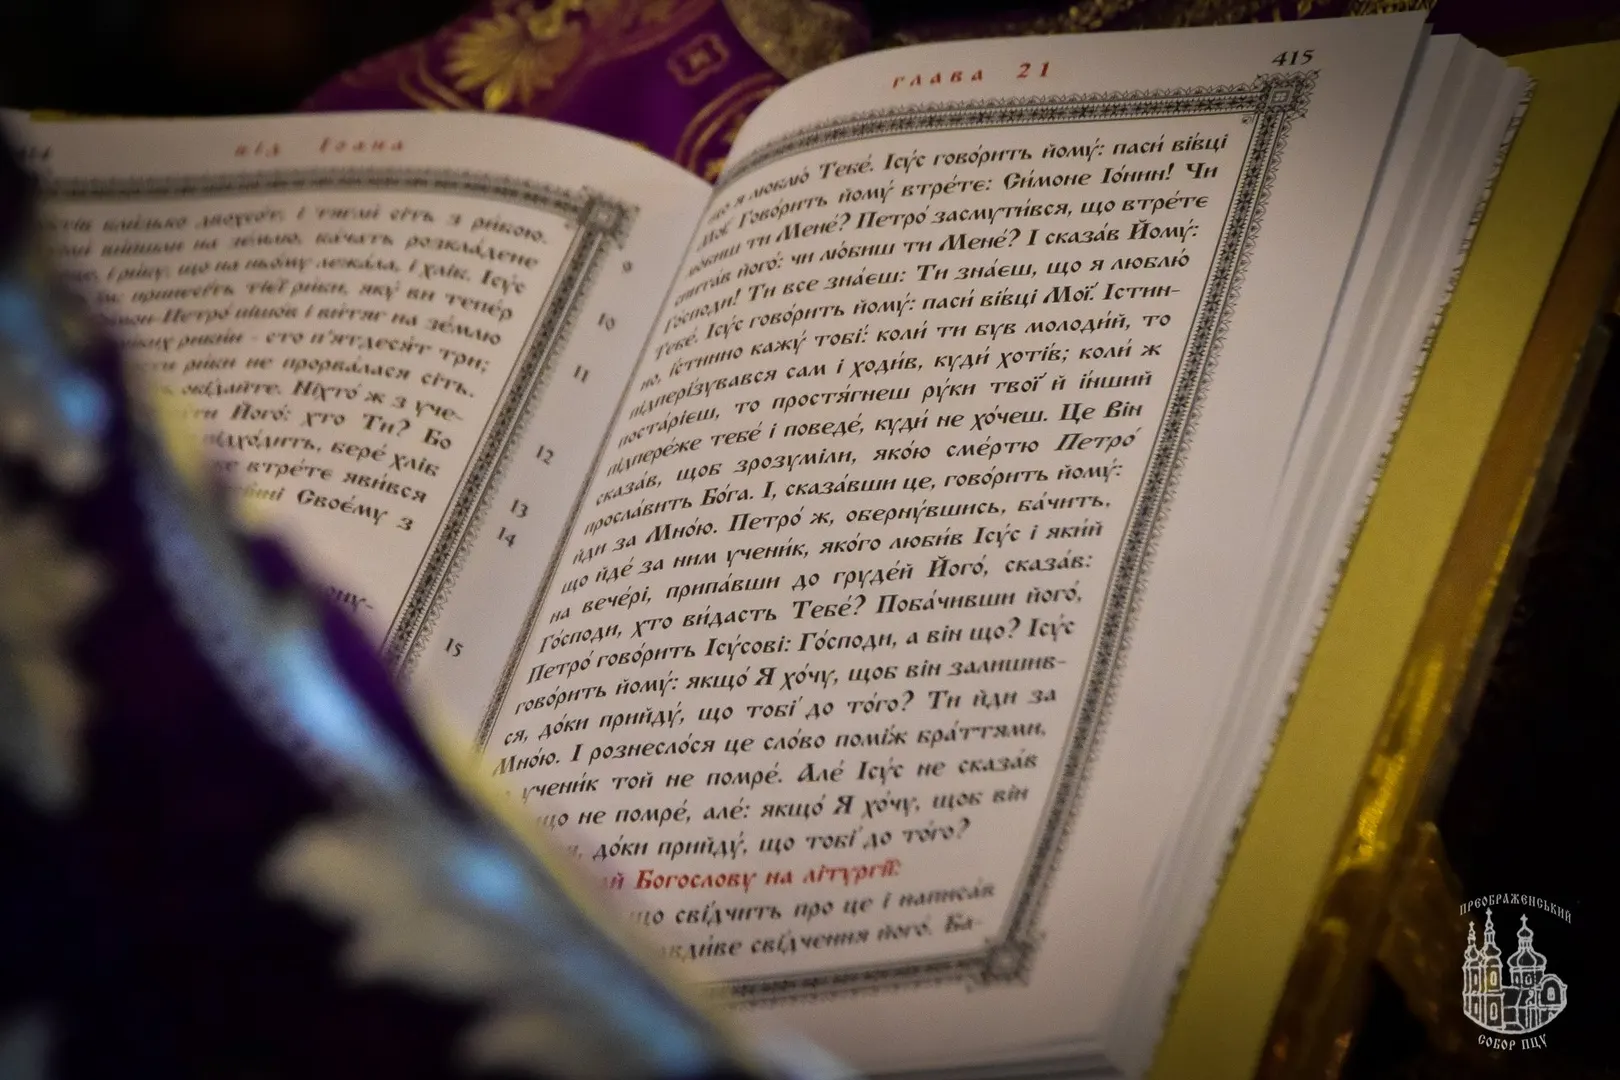 від Іоана
стів близько двохсот, і тягли сіть з рибою.
вийшли на зе́млю, ба́чать розкла́дене
і ри́бу, що на ньо́му лежа́ла, і хліб. Ісу́с
принесі́ть тіє́ї ри́би, яку́ ви тепе́р
Петро́ пішо́в і ви́тяг на зе́млю
ри́бин - сто п'ятдеся́т три;
ри́би не прорва́лася сіть.
обі́дайте. Ніхто́ ж з уче-
Його́: хто Ти? Бо
підхо́дить, бере́ хліб
втре́тє яви́вся
Своє́му з
9
10
11
12
13
14
15
глава 21
415
я люблю́ Тебе́. Ісу́с гово́рить йому́: паси́ ві́вці
Мої́. Гово́рить йому́ втре́тє: Си́моне Іо́нин! Чи
лю́биш ти Мене́? Петро́ засмути́вся, що втре́тє
спита́в його́: чи лю́биш ти Мене́? І сказа́в Йому́:
Го́споди! Ти все зна́єш: Ти зна́єш, що я люблю́
Тебе́. Ісу́с гово́рить йому́: паси́ ві́вці Мої́. Істин-
но, і́стинно кажу́ тобі́: коли́ ти був молоди́й, то
підпері́зувався сам і ходи́в, куди́ хоті́в; коли́ ж
поста́рієш, то простя́гнеш ру́ки твої́ й і́нший
підпере́же тебе́ і поведе́, куди́ не хо́чеш. Це Він
сказа́в, щоб зрозумі́ли, яко́ю сме́ртю Петро́
просла́вить Бо́га. І, сказа́вши це, гово́рить йому́:
йди за Мно́ю. Петро́ ж, оберну́вшись, ба́чить,
що йде́ за ним учени́к, яко́го люби́в Ісу́с і яки́й
на вече́рі, припа́вши до груде́й Його́, сказа́в:
Го́споди, хто ви́дасть Тебе́? Поба́чивши його́,
Петро́ гово́рить Ісу́сові: Го́споди, а він що? Ісу́с
гово́рить йому́: якщо́ Я хо́чу, щоб він залиши́в-
ся, до́ки прийду́, що тобі́ до то́го? Ти йди за
Мно́ю. І рознесло́ся це сло́во помі́ж бра́ттями,
учени́к той не помре́. Але́ Ісу́с не сказа́в
що не помре́, але́: якщо́ Я хо́чу, щоб він
до́ки прийду́, що тобі́ до то́го?
Богослову на літургії:
що сві́дчить про це і написа́в
сві́дчення його́. Ба-
ПРЕОБРАЖЕНСЬКИЙ
СОБОР ПЦУ